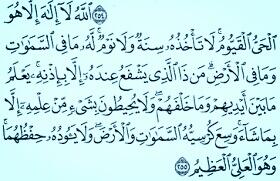 ٢٥٤ ٱللَّهُ لَآ إِلَٰهَ إِلَّا هُوَ
ٱلْحَىُّ ٱلْقَيُّومُ ۚ لَا تَأْخُذُهُۥ سِنَةٌ وَلَا نَوْمٌ ۚ لَّهُۥ مَا فِى ٱلسَّمَٰوَٰتِ
وَمَا فِى ٱلْأَرْضِ ۗ مَن ذَا ٱلَّذِى يَشْفَعُ عِندَهُۥٓ إِلَّا بِإِذْنِهِۦ ۚ يَعْلَمُ
مَا بَيْنَ أَيْدِيهِمْ وَمَا خَلْفَهُمْ ۖ وَلَا يُحِيطُونَ بِشَىْءٍ مِّنْ عِلْمِهِۦٓ إِلَّا
بِمَا شَآءَ ۚ وَسِعَ كُرْسِيُّهُ ٱلسَّمَٰوَٰتِ وَٱلْأَرْضَ ۖ وَلَا يَـُٔودُهُۥ حِفْظُهُمَا ۚ
وَهُوَ ٱلْعَلِىُّ ٱلْعَظِيمُ ٢٥٥